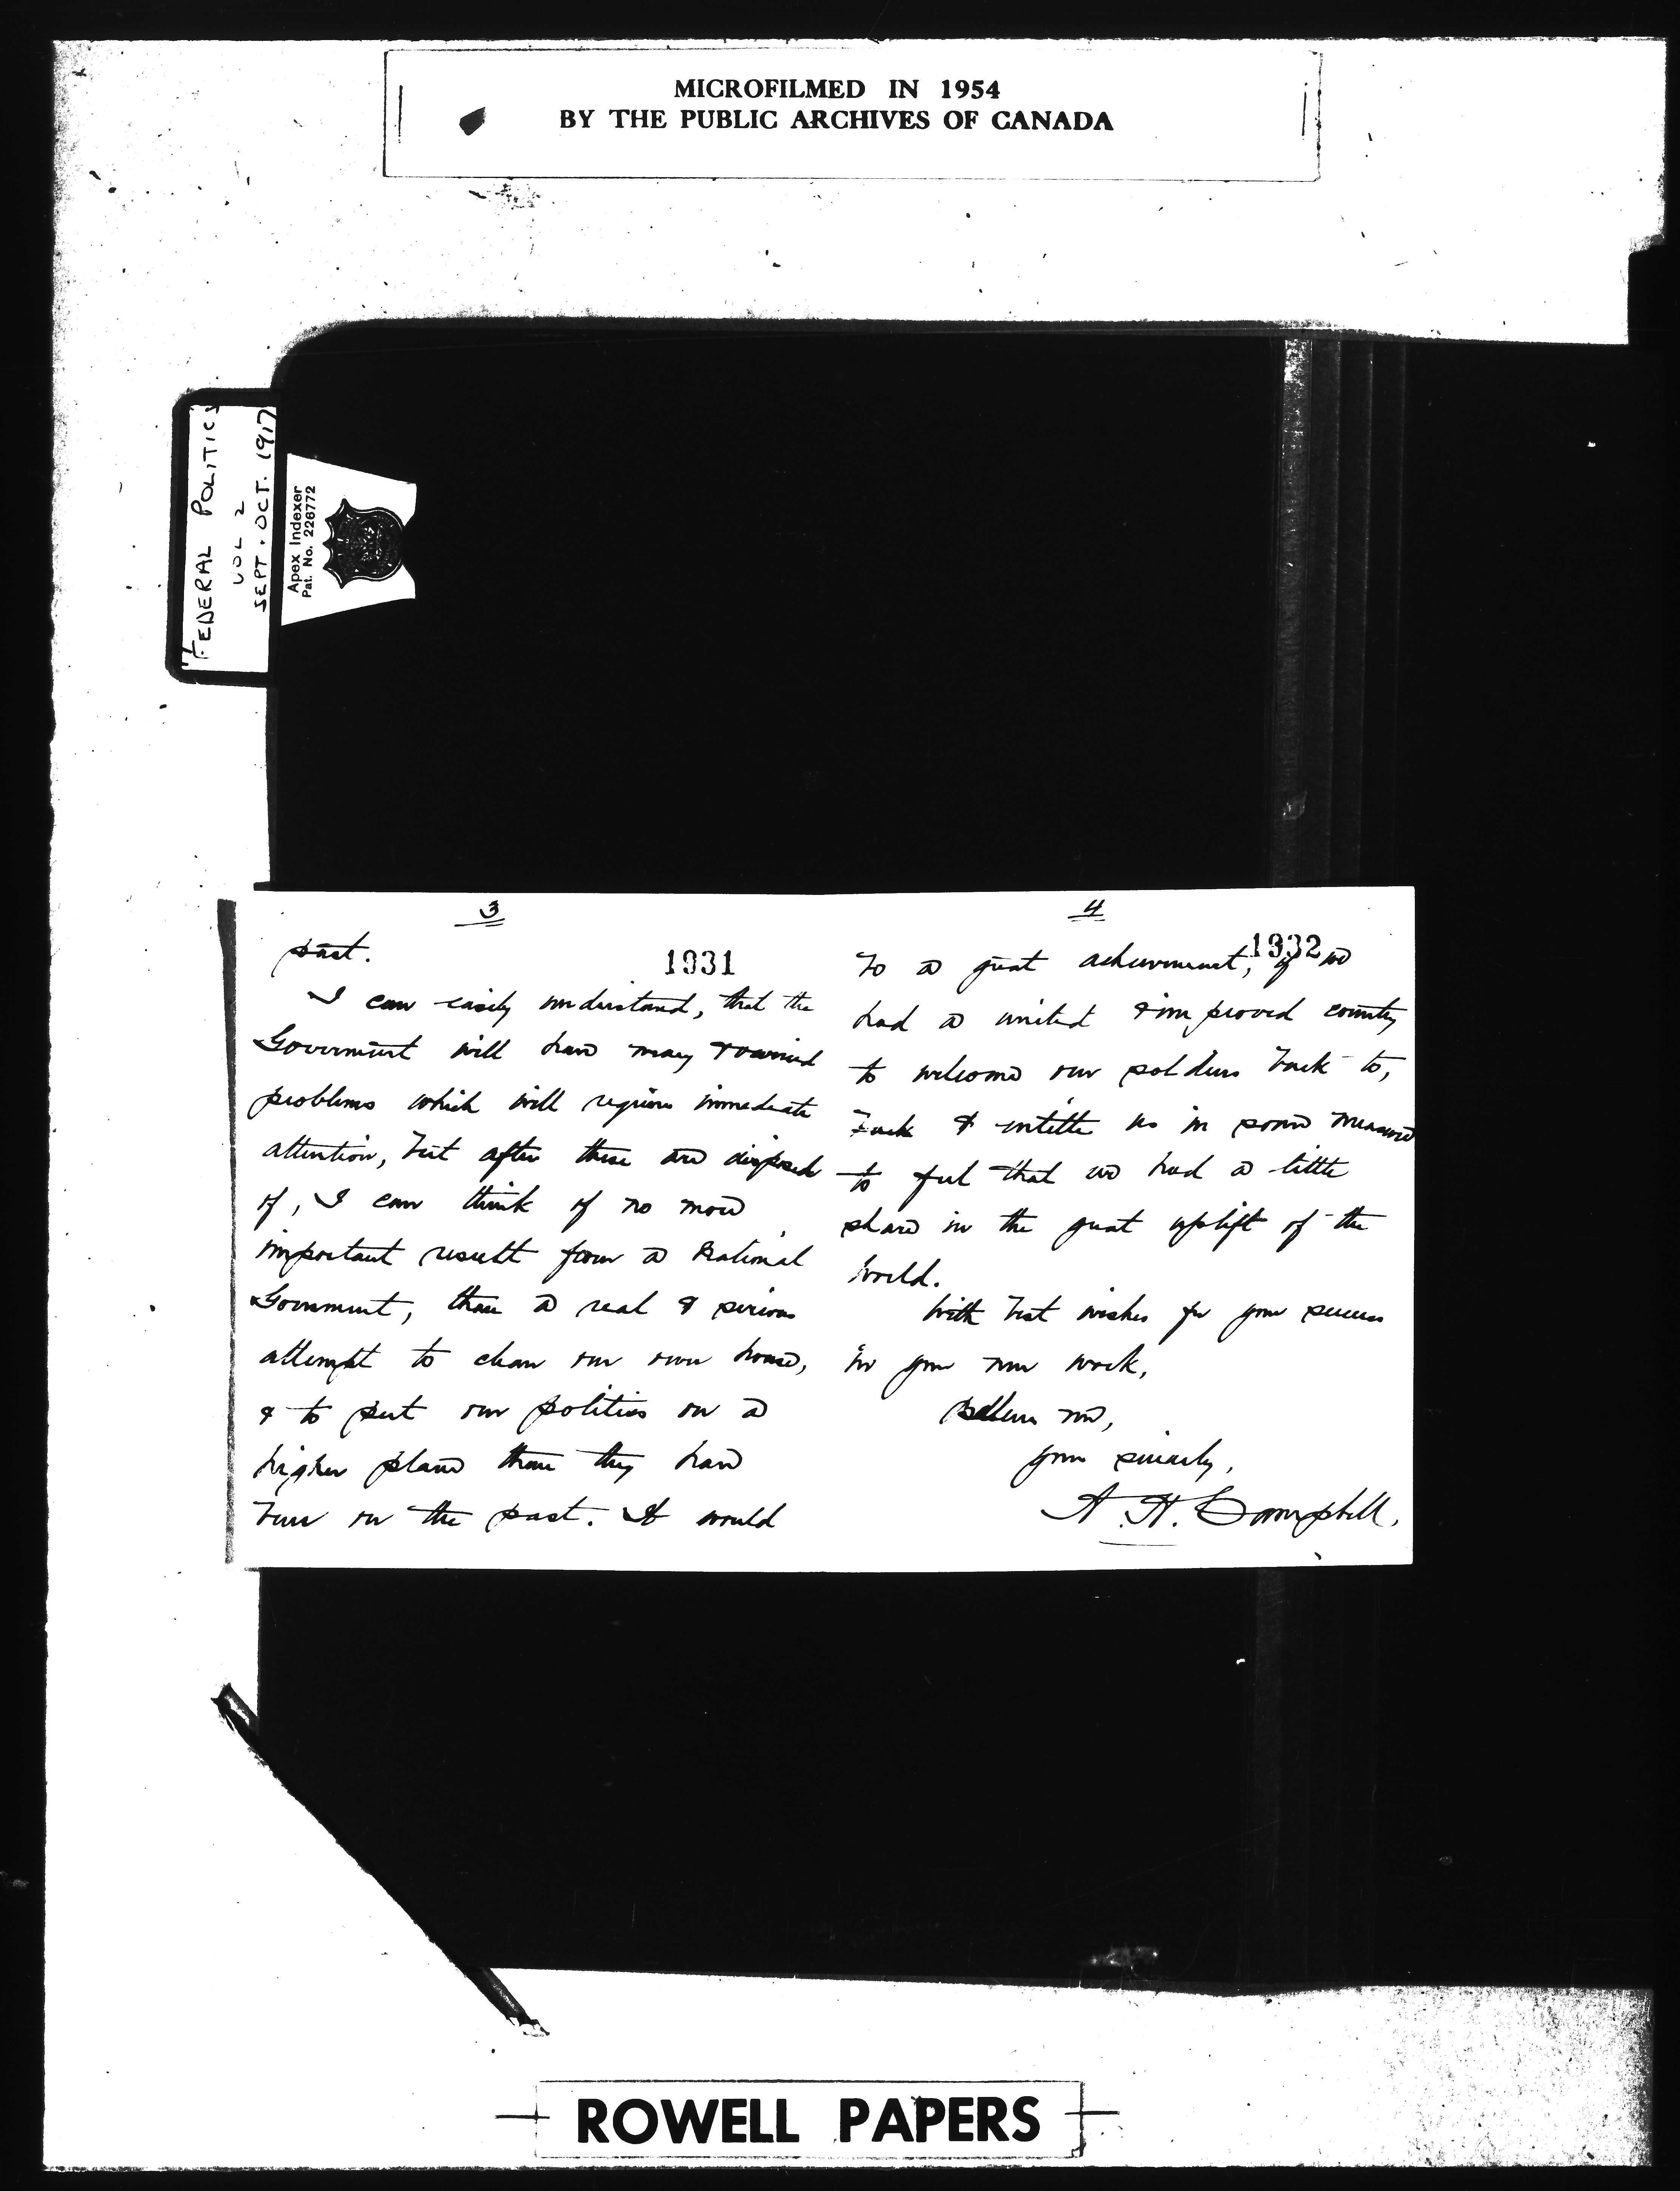 MICROFILMED IN 1954
BY THE PUBLIC ARCHIVES OF CANADA
FEDERAL POLITICS
VOL 2
SEPT. OCT. 1917
Apex Indexer
Pat. No. 226772
3
1931
past.
I can easily understand, that the
Government will have many & varied
problems which will require immediate
attention, but after these are disposed
of, I can think of no more
important result from a National
Government, than a real & serious
attempt to clean our own house,
& to put our politics on a
higher plane than they have
been in the past. It would
4
1932
be a great acheivement, if we
had a united & improved country
to welcome our soldiers back to,
& entitle us in some measure
to feel that we had a little
share in the great uplift of the
world.
With best wishes for your success
in your new work,
Believe me,
Yours sincerely,
A. H. Campbell.
ROWELL PAPERS